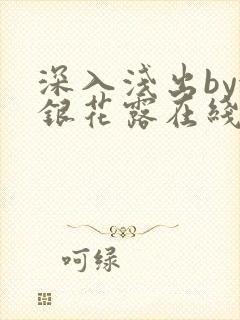 深入浅出by
銀花露在綫
呵绿